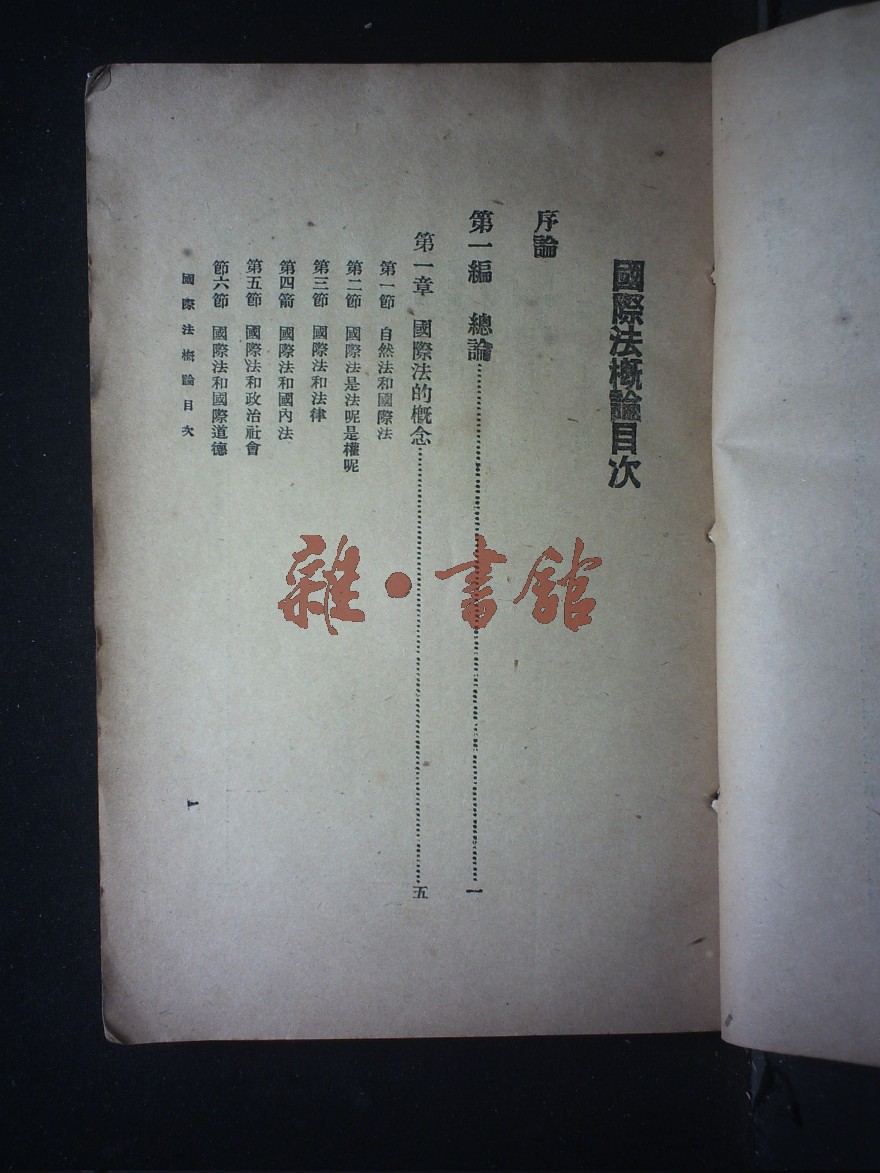 國際法概論目次
序論
第一編　總論……一
第一章　國際法的概念……五
第一節　自然法和國際法
第二節　國際法是法呢是權呢
第三節　國際法和法律
第四箭　國際法和國內法
第五節　國際法和政治社會
節六節　國際法和國際道德
國際法概論目次
一
雜·書館